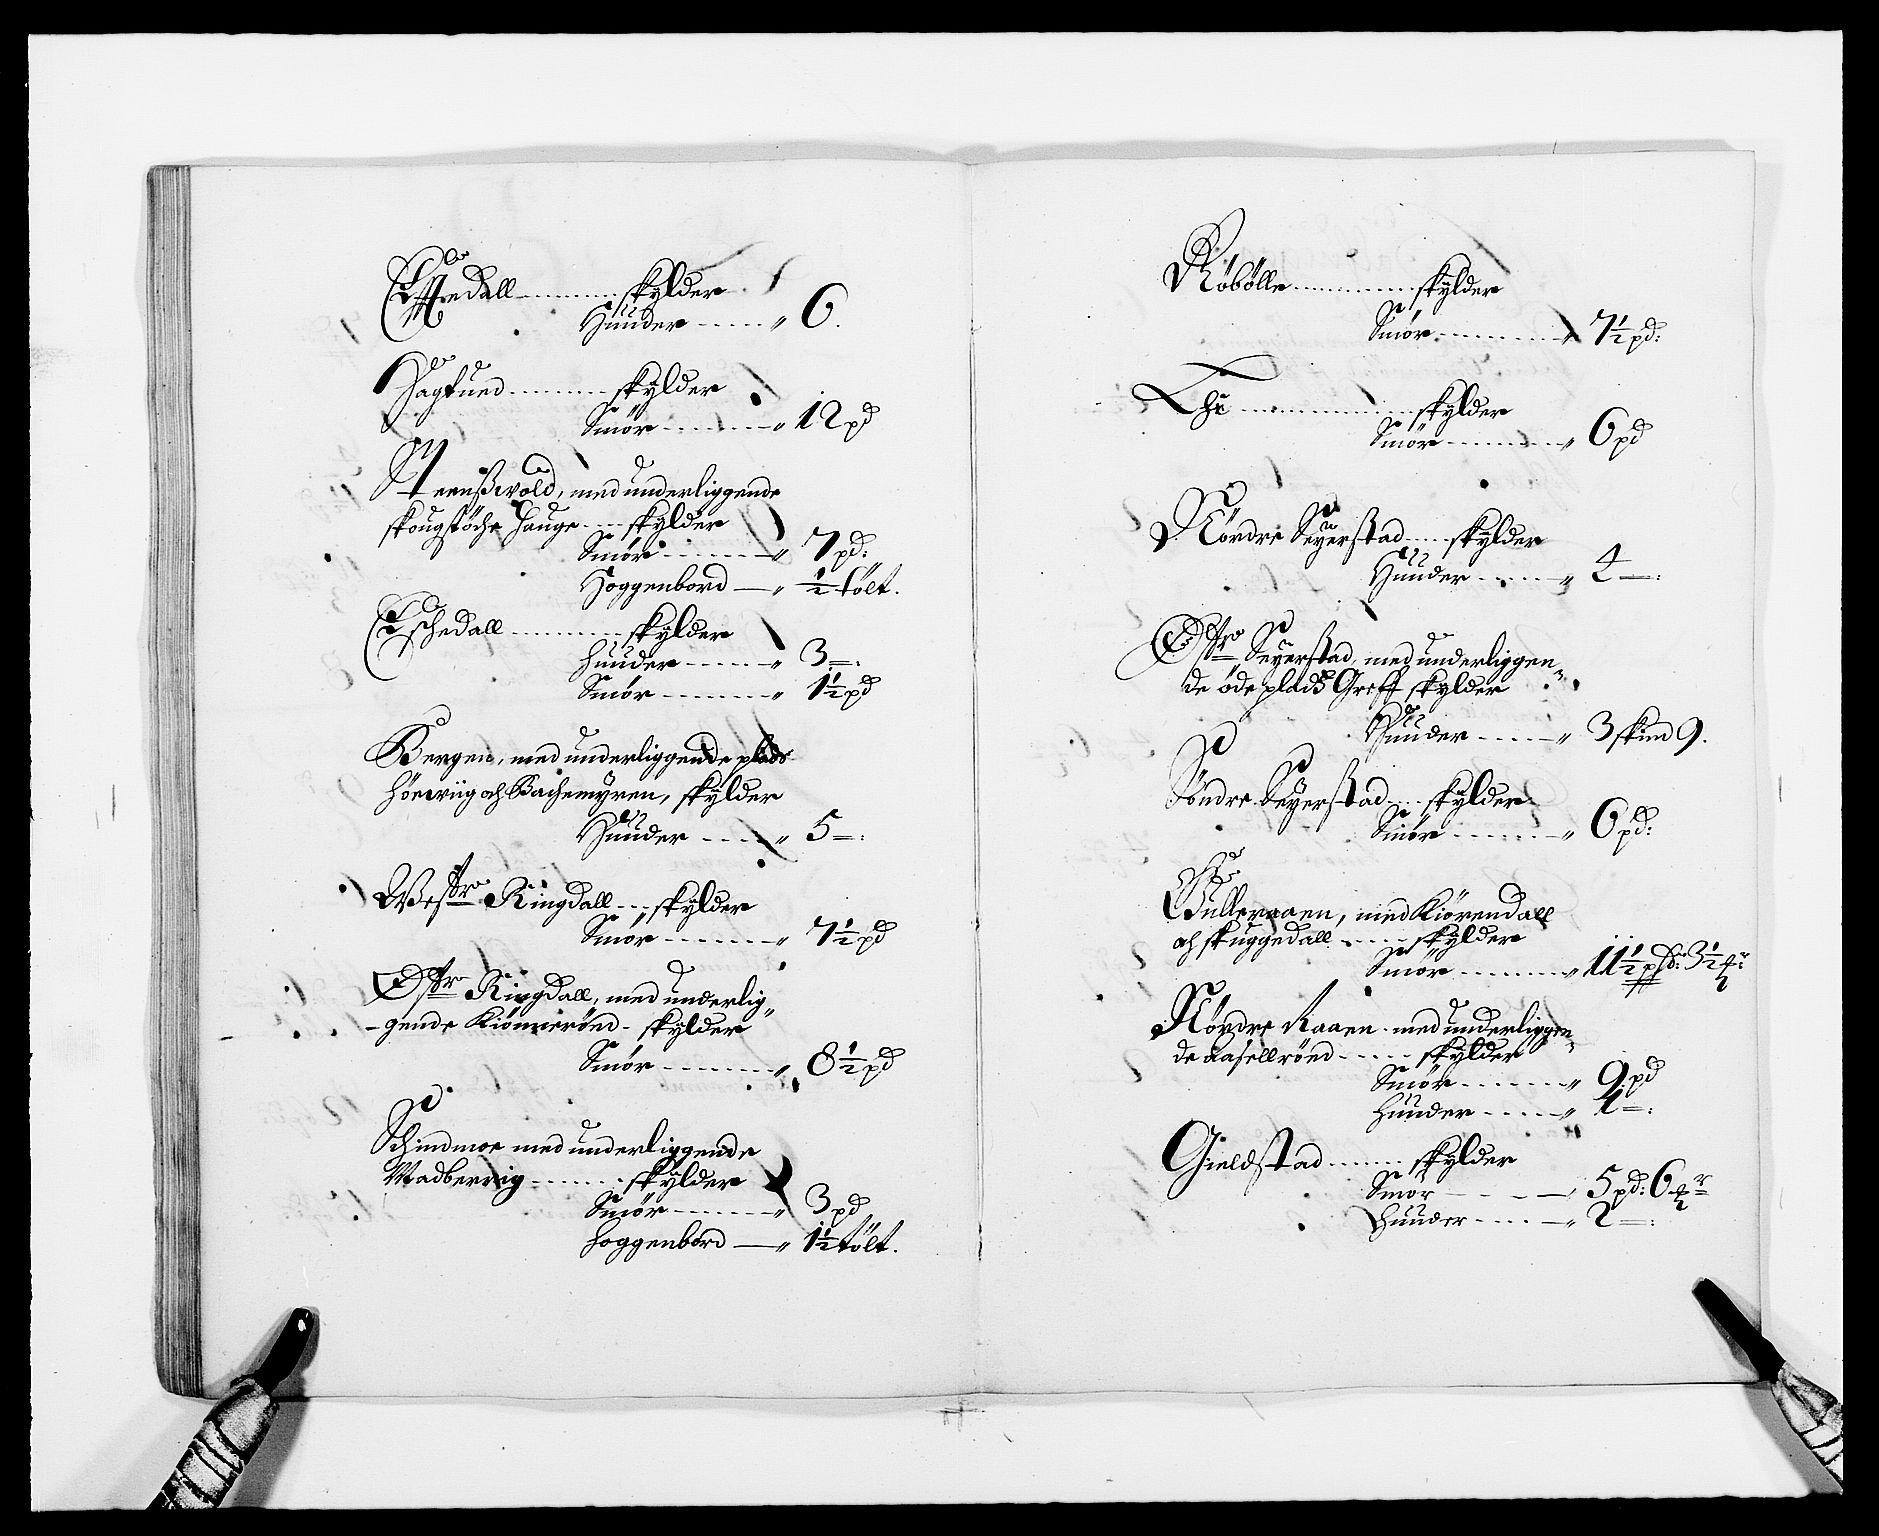 Effuedall ........ skylder
Huuder ...... „ 6.
Hagtued ......... skylder
Smör ........ „ 12 pd
Steenßwold, med underliggende
skougstöche Hauge .... skylder
Smör ....... „ 7 pd:
Hoggenbord — „ ½ tölt.
Eschedall .......... skylder
Huuder ...... „ 3 =:
Smör ........ „ 1½ pd
Bergen, med underliggende plads
och Bachemyren, skylder
Huuder ..... „ 5 =:
Westre Ringdall .... skylder
Smör ........ „ 7½ pd
Østre Ringdall, med underlig„
-gende Kiönnerönd - skylder
Smör ........ „ 8½ pd
Schindmoe med underliggende
Madberrig ........ skylder
Smör ........ „ 3 pd
hoggenbord — „ 1½ tölt.
Röbölle .............. skylder
Smör .......... „ 7½ pd:
Thi ................. skylder
Smör .......... „ 6 pd
Nördre Seyerstad ..... skylder
Huuder ...... „ 4 =:
Østre Seyerstad, med underliggen„
de øde plads Greff skylder
Huuder ..... „ 3 skind 9.
Söndre Seyerstad .... skylder
Smör ........ „ 6 pd:
Gulleraaen, med Kiörendall
och skuggedall ...... skylder
Smör ......... „ 11½ pd: 3½
Nördre Raaen med underliggen„
de aasellrönd ...... skylder
Smör ........ „ 9 pd
Huuder ..... „ 1 =:
Gieldstad ....... skylder
Smör ....... „ 5 pd: 6
Huuder ..... „ 2 =: